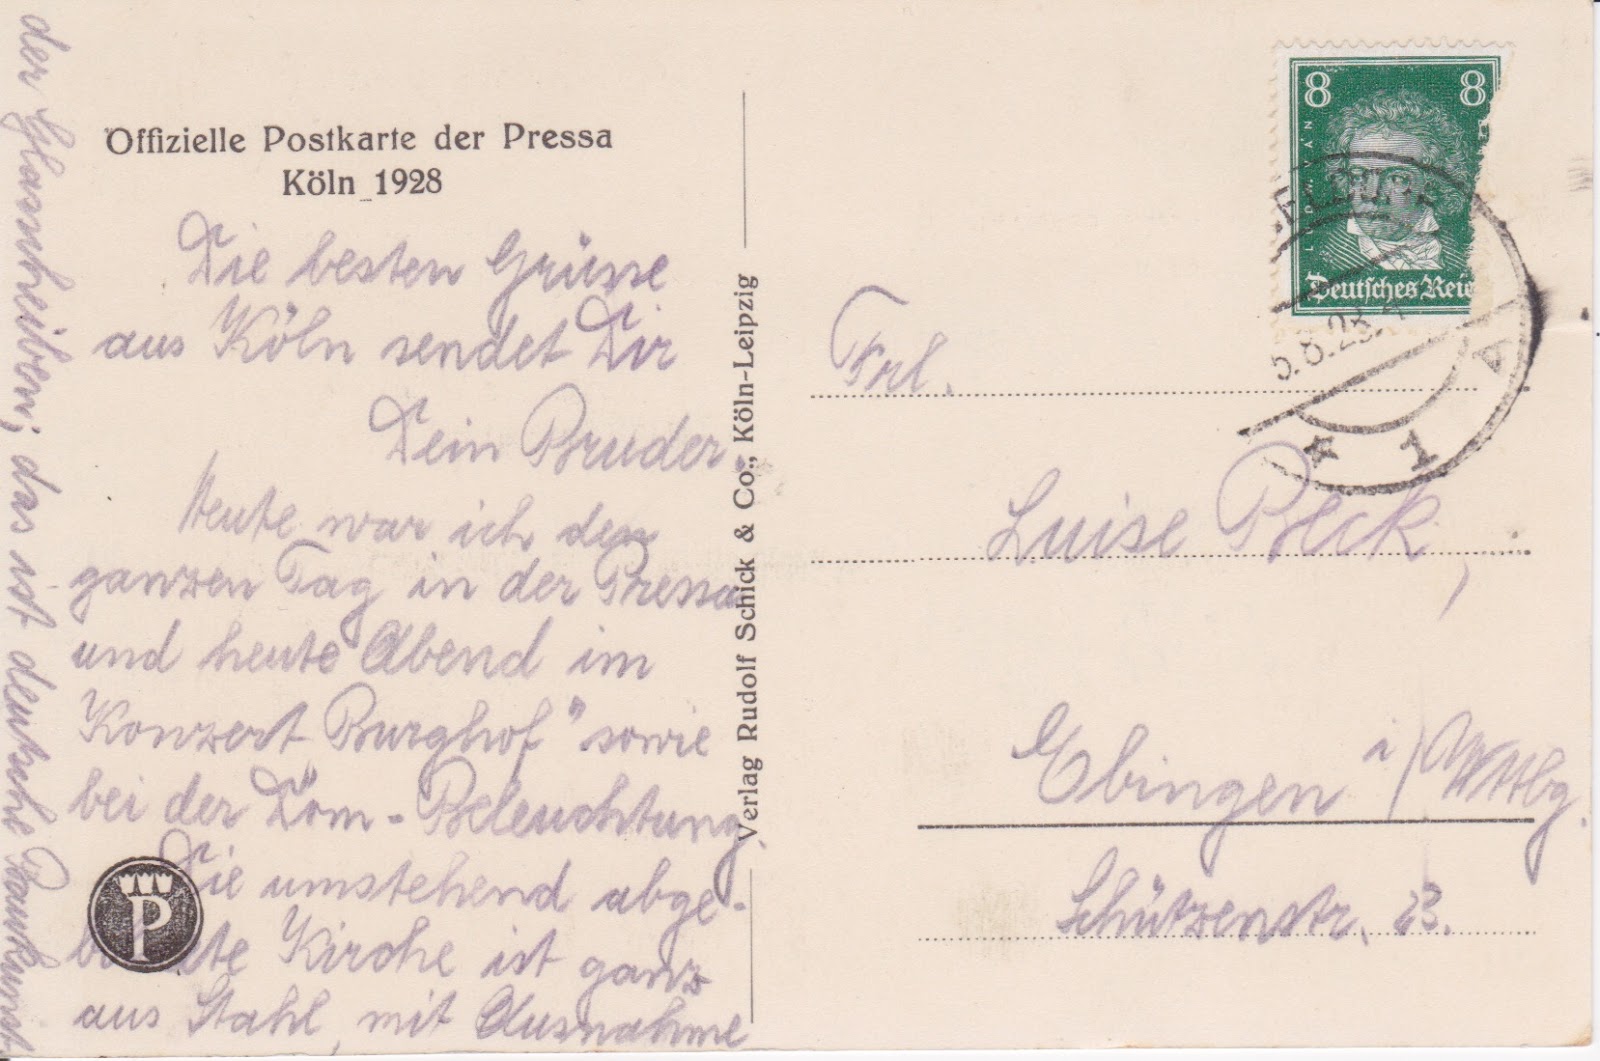 Offizielle Postkarte der Pressa
Köln 1928
Die besten Grüsse
aus Köln sendet Dir
Dein Bruder.
Heute war ich den
ganzen Tag in der Pressa
und heute Abend im
Konzert Burghof" sowie
bei der Dom-Beleuchtung.
Die umstehend abge-
bildete Kirche ist ganz
aus Stahl, mit Ausnahme
der Glasscheiben; das ist deutsche Baukunst
P
Verlag Rudolf Schick & Co., Köln-Leipzig
8 8
Deutsches Reic
5.8.28.
* 1
Frl.
Luise Beck,
Ebingen a/Wttbg.
Schützenstr. 23.